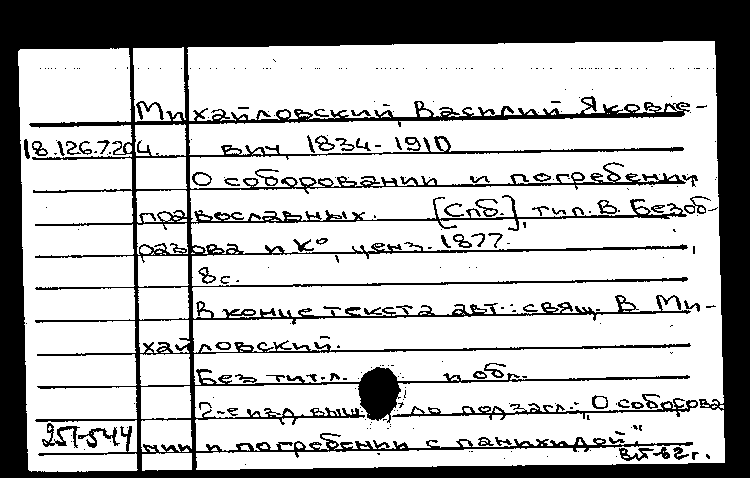 Михайловский, Василий Яковле-
18.126.7.204. вич, 1834-1910
О соборовании и погребении
православных. [Спб.], тип. В. Безоб-
разова и К°, ценз. 1877.
8 с.
В конце текста авт.: свящ. В. Ми-
хайловский.
Без тит. л. и обл.
2-е изд. вышло под загл.: „О соборова
257-544 нии и погребении с панихидой".